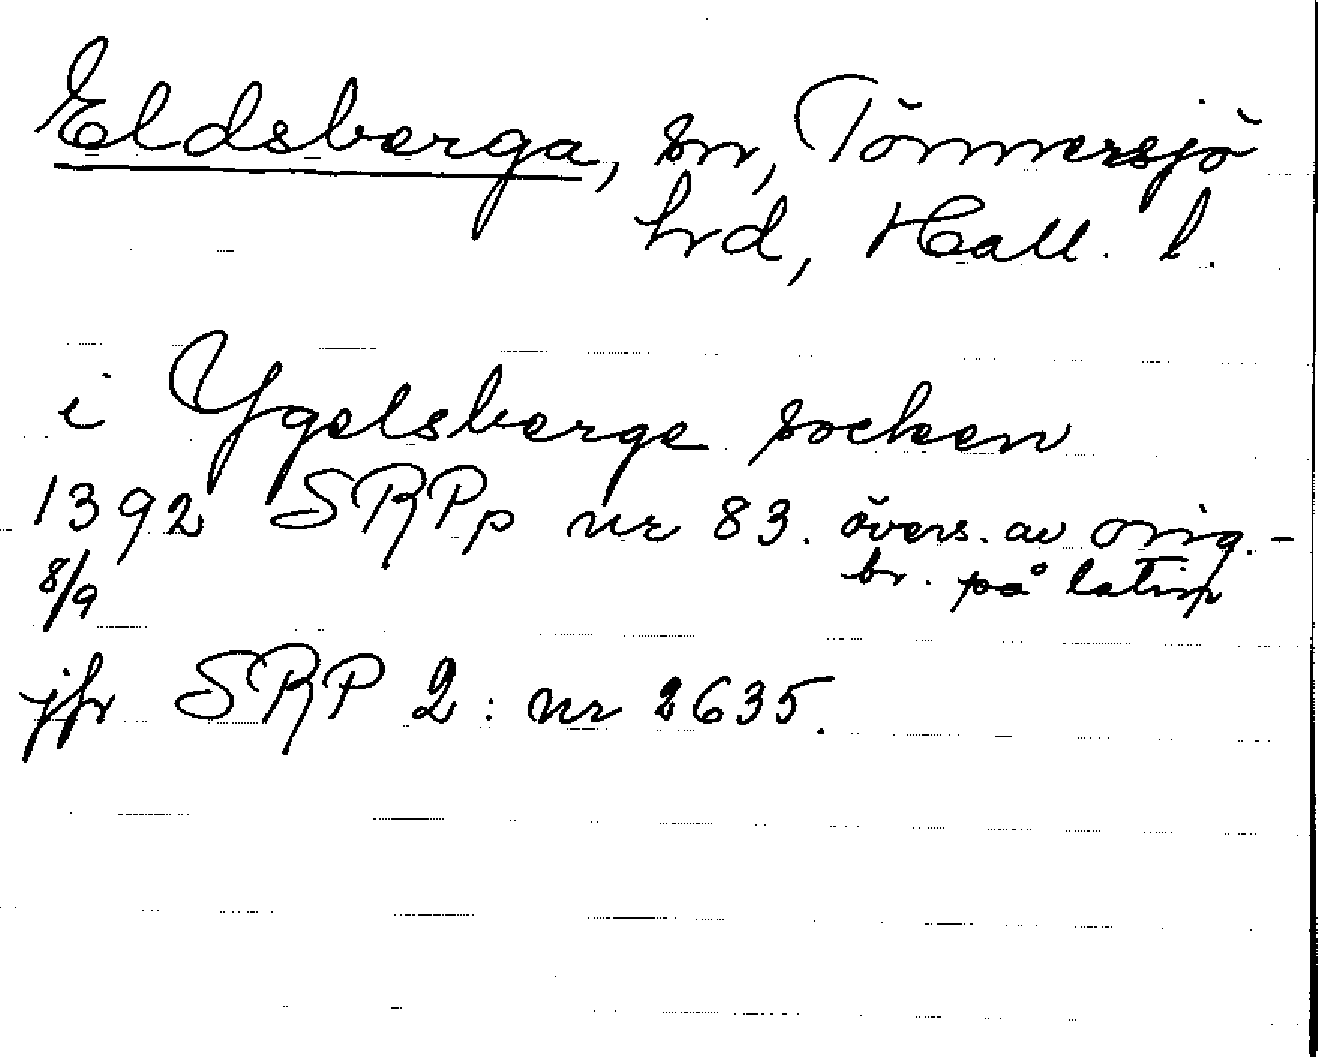 Eldsberga, sn, Tönnersjö
hrd, Hall. l.
i Ygelsberge socken
1392 SRPp nr 83. övers. av orig.-
8/9 br. på latin
jfr SRP 2: nr 2635.